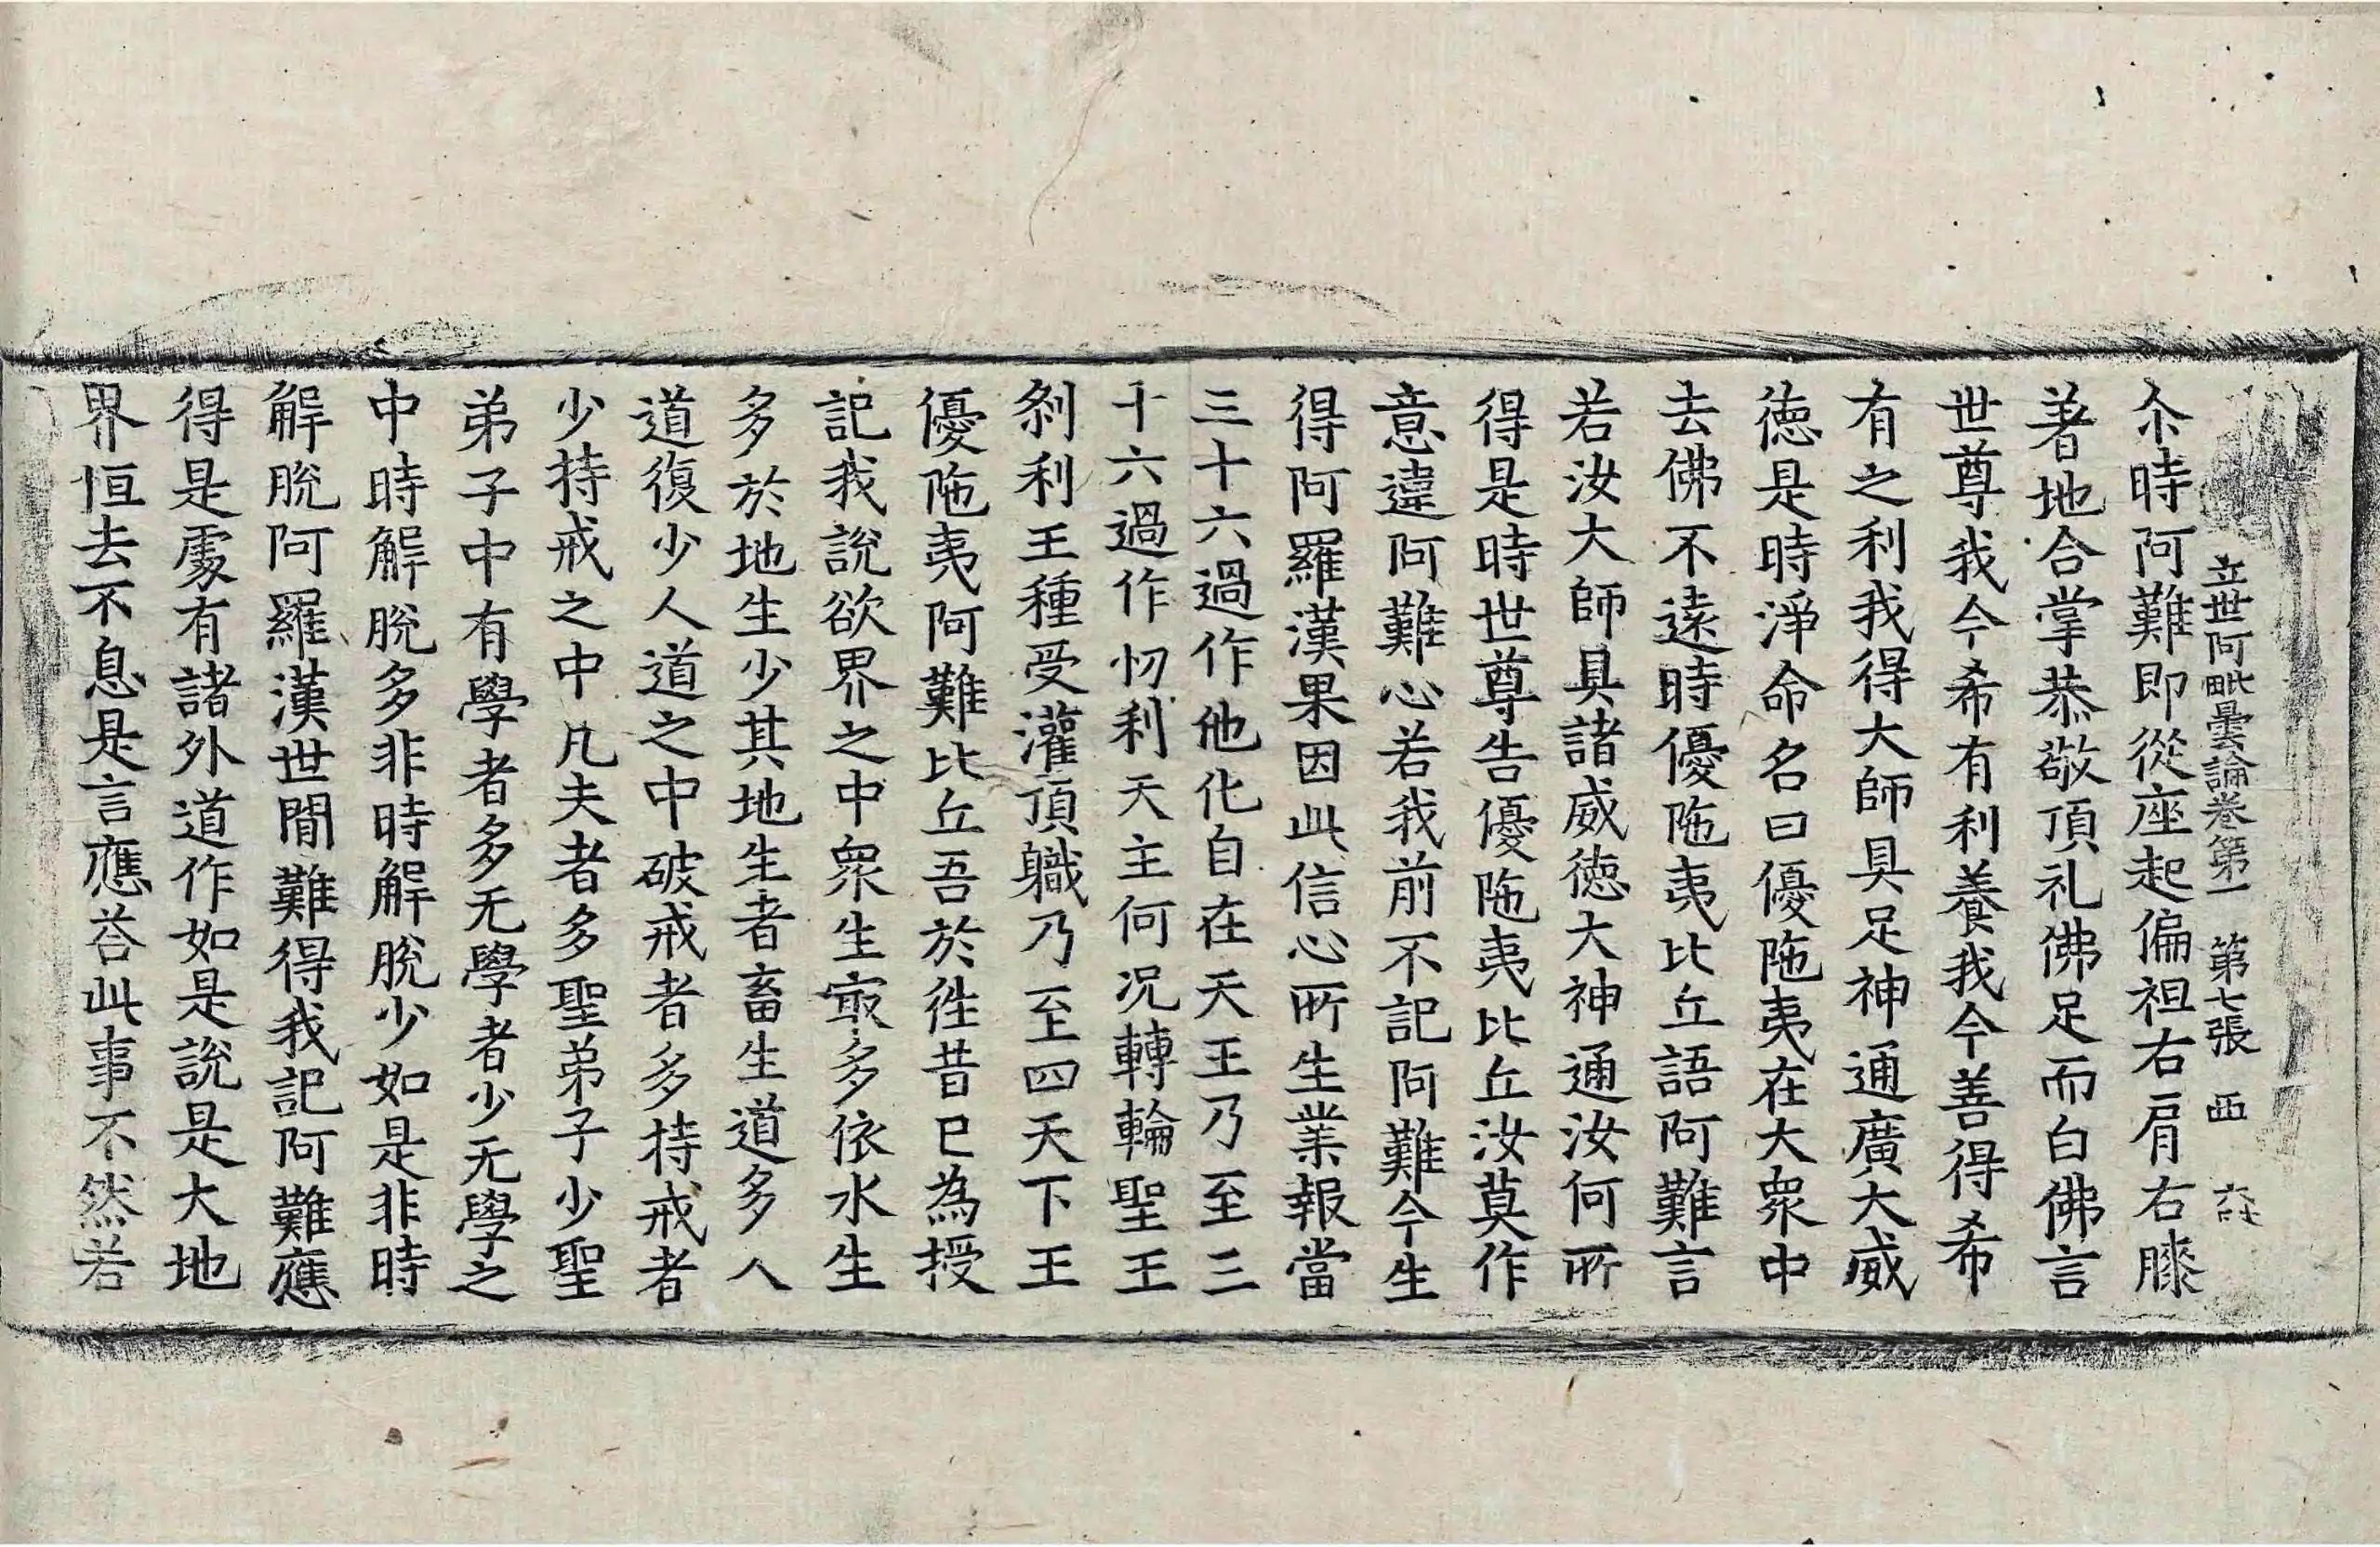 立世阿毗曇論卷第一 第七張 西
尒時阿難即從座起偏袒右肩右膝
著地合掌恭敬頂礼佛足而白佛言
世尊我今希有利養我今善得希
有之利我得大師具足神通廣大威
德是時淨命名曰優陁夷在大衆中
去佛不遠時優陁夷比丘語阿難言
若汝大師具諸威德大神通汝何所
得是時世尊告優陁夷比丘汝莫作
意違阿難心若我前不記阿難今生
得阿羅漢果因此信心所生業報當
三十六過作他化自在天王乃至三
十六過作忉利天主何况轉輪聖王
刹利王種受灌頂職乃至四天下王
優陁夷阿難比丘吾於徃昔已為授
記我說欲界之中衆生寂多依水生
多於地生少其地生者畜生道多人
道復少人道之中破戒者多持戒者
少持戒之中凡夫者多聖弟子少聖
弟子中有學者多无學者少无學之
中時解脫多非時解脫少如是非時
解脫阿羅漢世閒難得我記阿難應
得是處有諸外道作如是說是大地
界恒去不息是言應荅此事不然若